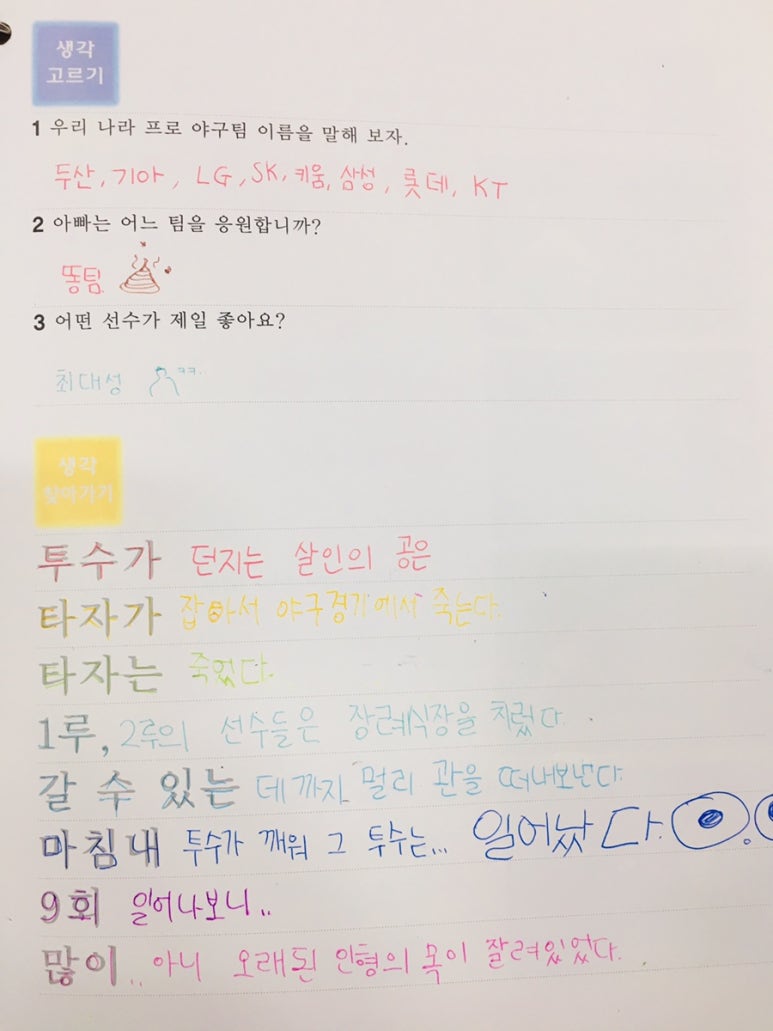 생각
고르기
1 우리 나라 프로 야구팀 이름을 말해 보자.
두산, 기아, LG, SK, 키움, 삼성, 롯데, KT
2 아빠는 어느 팀을 응원합니까?
똥팀
3 어떤 선수가 제일 좋아요?
최대성 ㅋㅋ.
생각
찾아가기
투수가 던지는 살인의 공은
타자가 잡아서 야구경기에서 죽는다.
타자는 죽었다.
1루, 2루의 선수들은 장례식장을 치렀다.
갈 수 있는 데까지 멀리 관을 떠내보낸다.
마침내 투수가 깨워 그 투수는... 일어났다.
9회 일어나보니..
많이.. 아니 오래된 인형의 목이 잘려있었다.